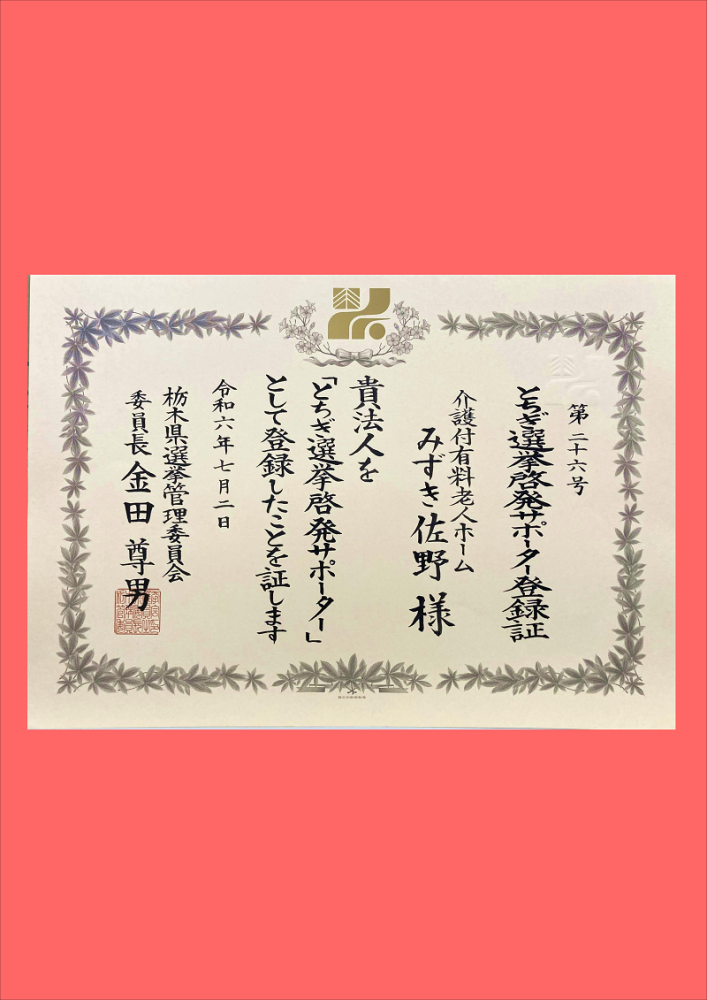 第二十六号
とちぎ選挙啓発サポーター登録証
介護付有料老人ホーム
みずき佐野様
貴法人を
「とちぎ選挙啓発サポーター」
として登録したことを証します
令和六年七月二日
栃木県選挙管理委員会
委員長 金田 尊男